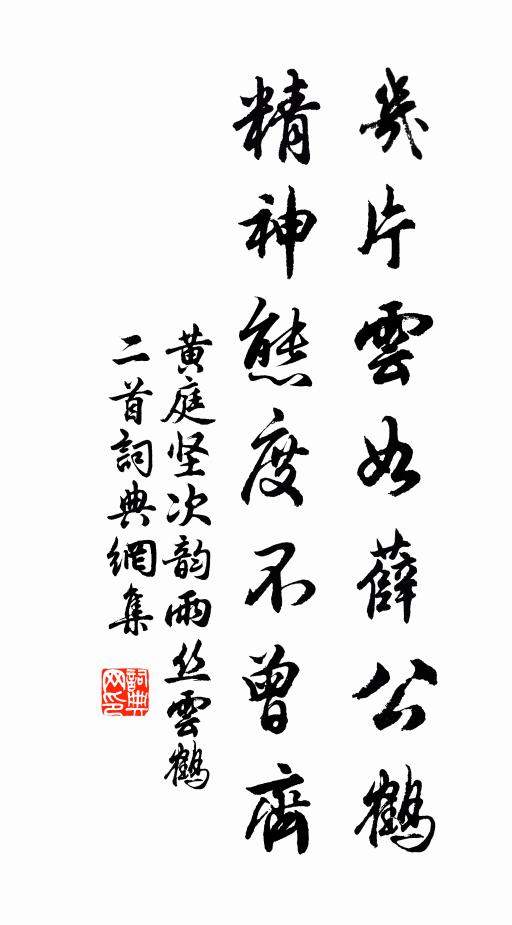 幾片雲如薛公鶴
精神態度不曾齊
黄庭坚次韵雨丝雲鶴
二首詞典網集
詞典
网印